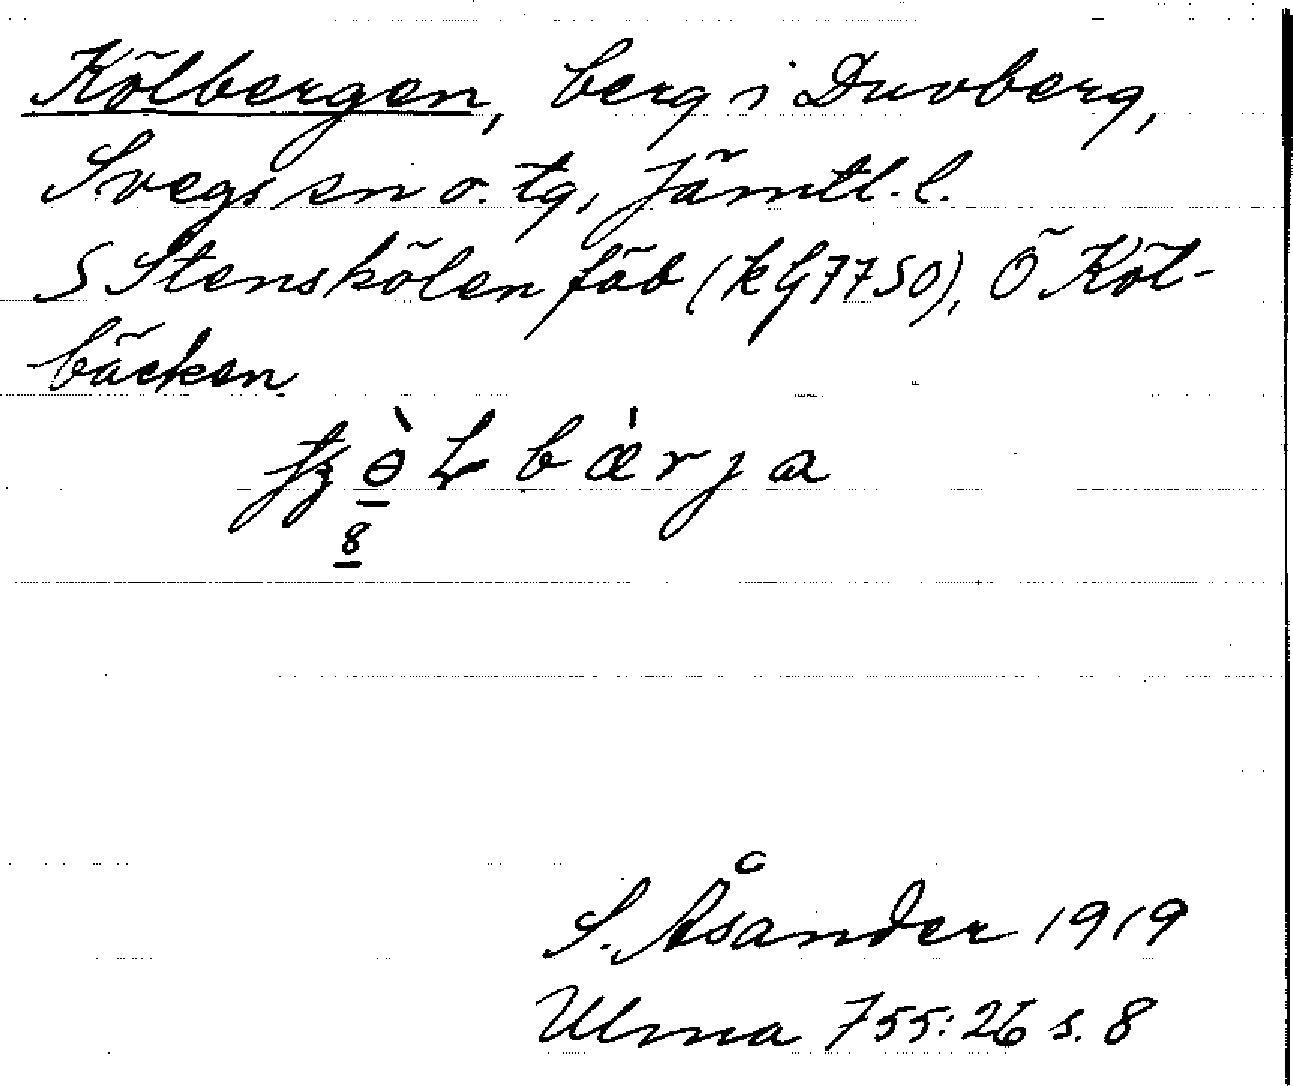 Kölbergen, berg i Duvberg,
Svegs sn o. tg, Jämtl. l.
S Stenskölen fäb (kG7750), Ö Köl-
bäcken
bærja
8
S. Åsander 1919
Ulma 755:26 s. 8